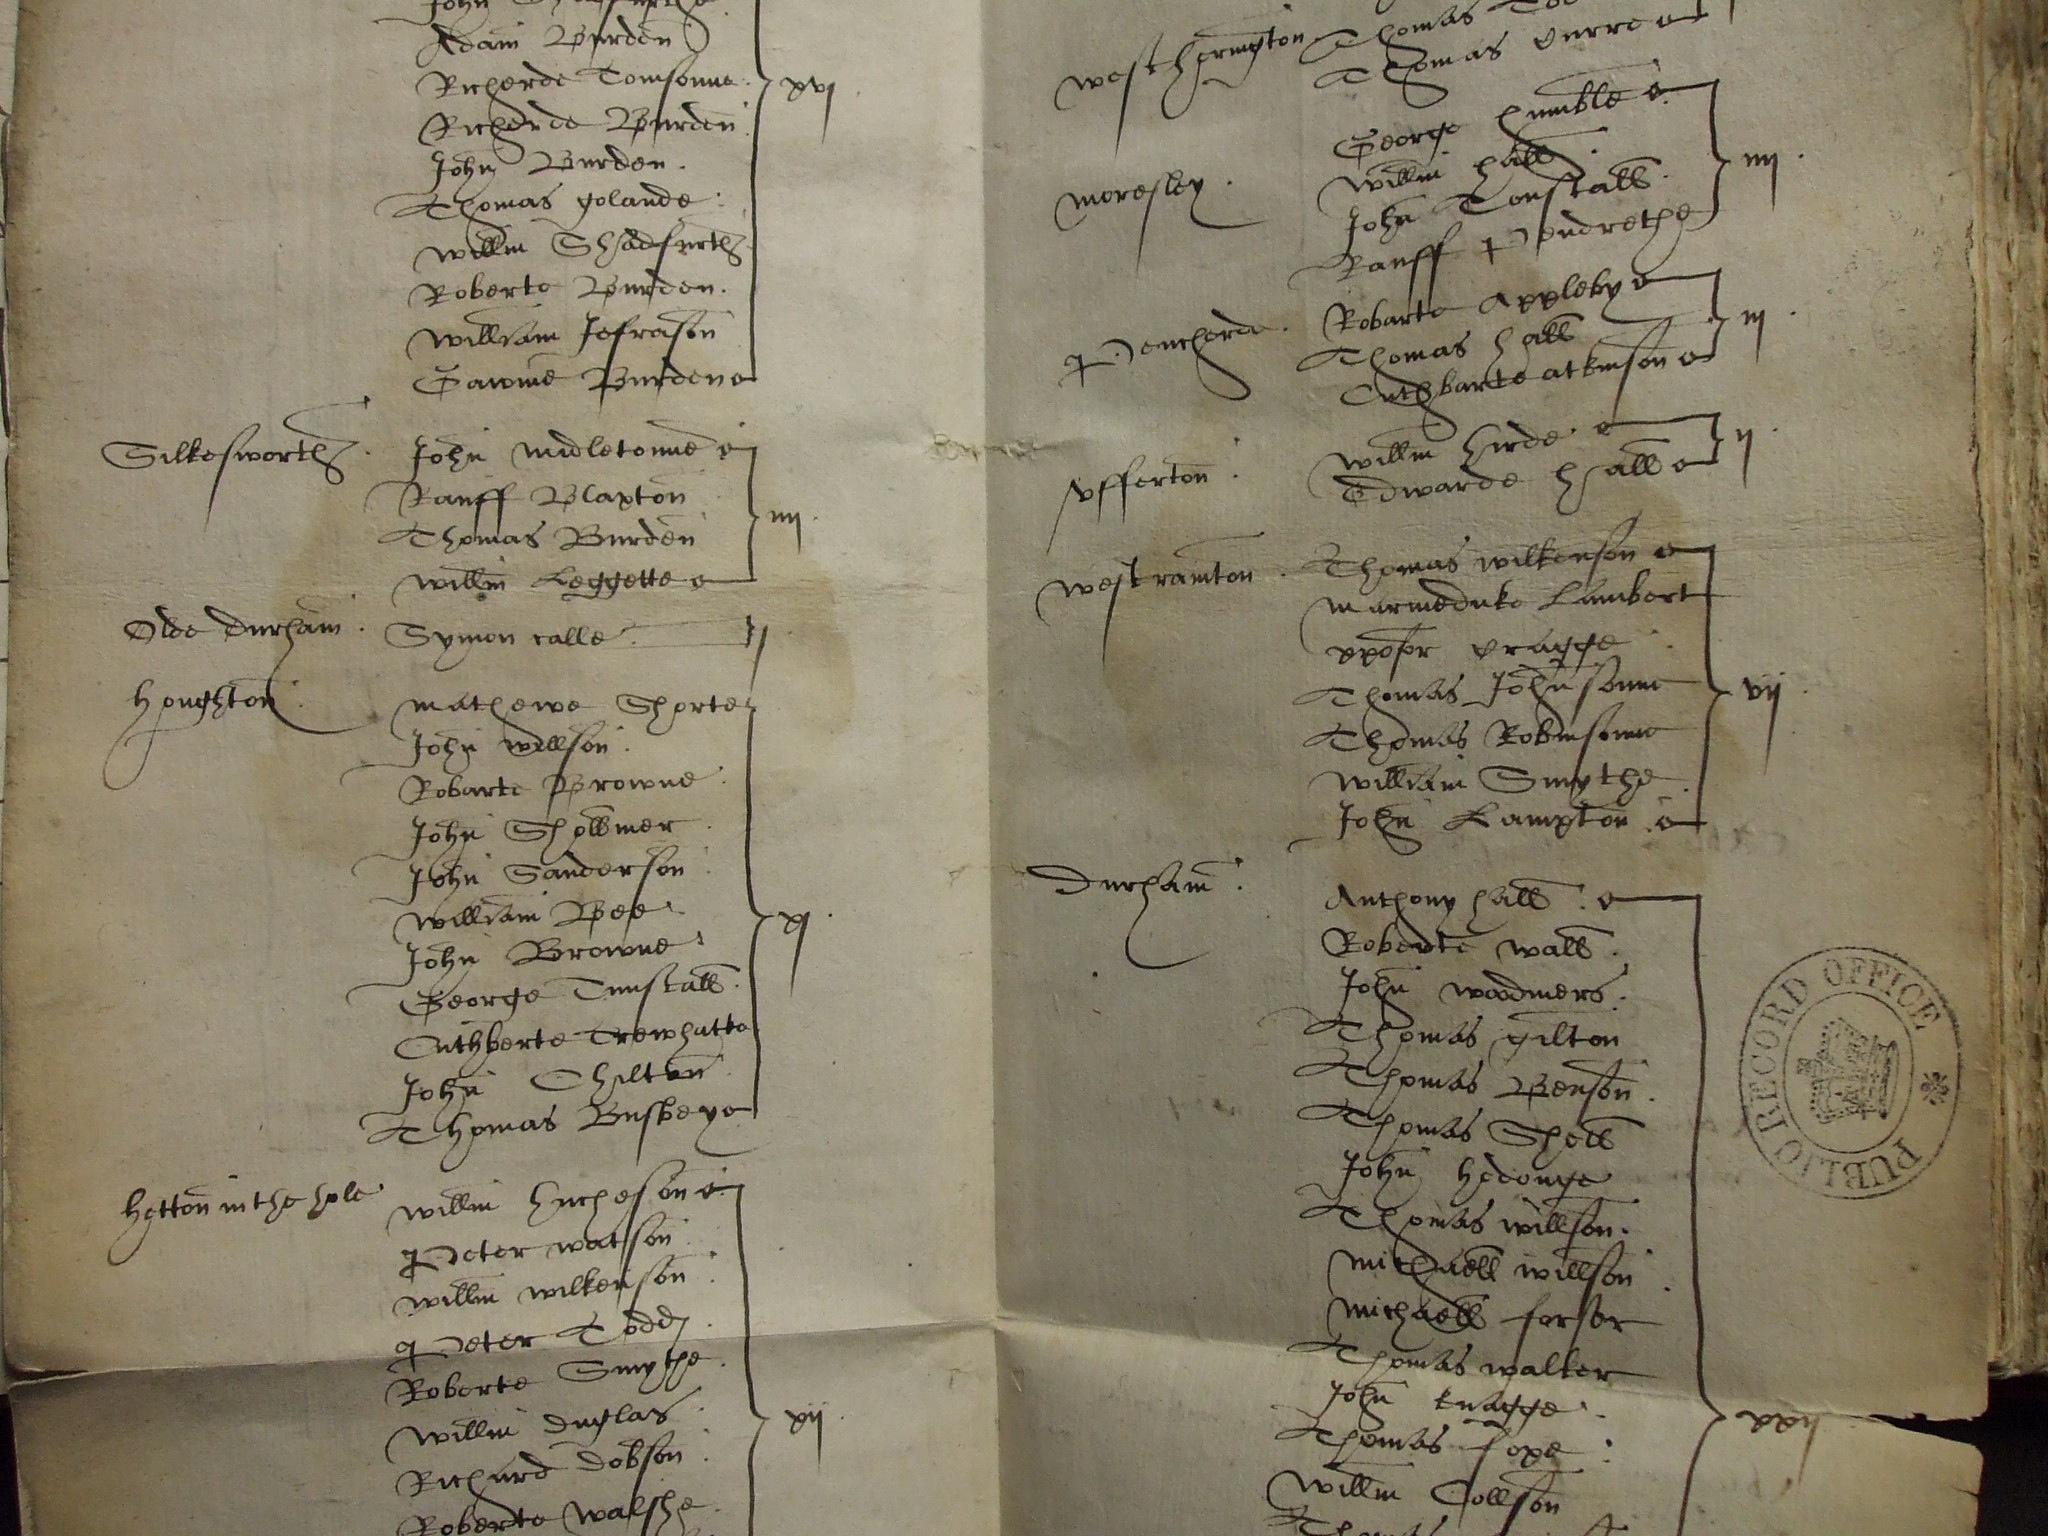 Adam Burden
Richerde Tomsonne
Richerde Burden
xvj
John Burden
Thomas golande
Willm Shadfurth
Roberte Burden
William Jefrason
Gawine Burden
Silkesworth
John Midletonne
Ranff Blaxton
Thomas Burden
iiij
Willm Leggette
Olde Durham
Symon calle
j
Houghton
Mathewe Shorte
John Willson
Robarte Browne
John Shollmer
John Sanderson
William Bee
xj
John Browne
George Tunstall
Cuthberte Trewhatte
John Chilton
Thomas Busbey
Hetton in the hole
Willm Hucheson
Peter Watson
Willm Wilkenson
Peter Todd
Roberte Smythe
Willm Duglas
xij
Richard Dobson
Roberte Walshe
West Herington
Thomas
Thomas Curre
George Humble
Moresley
Willm Hall
iiij
John Tonstall
Ranff Pendrethe
Pencherde
Robarte Appleby
Thomas Hall
iij
Cuthbarte Atkinson
Ufferton
Willm Hirde
ij
Edwarde Hall
West ramton
Thomas Wilkenson
Marmeduke Lambert
xpofer Cragge
Thomas Johnsonne
vij
Thomas Robinsonne
William Smythe
John Lampton
Durham
Anthony Hall
Roberte Wall
John Woodmers
Thomas gilton
Thomas Benson
Thomas Shell
John
Thomas Willson
Michaell Willson
Michaell forser
Thomas Walker
John Knagge
Thomas foxe
Willm Collson
PUBLIC RECORD OFFICE